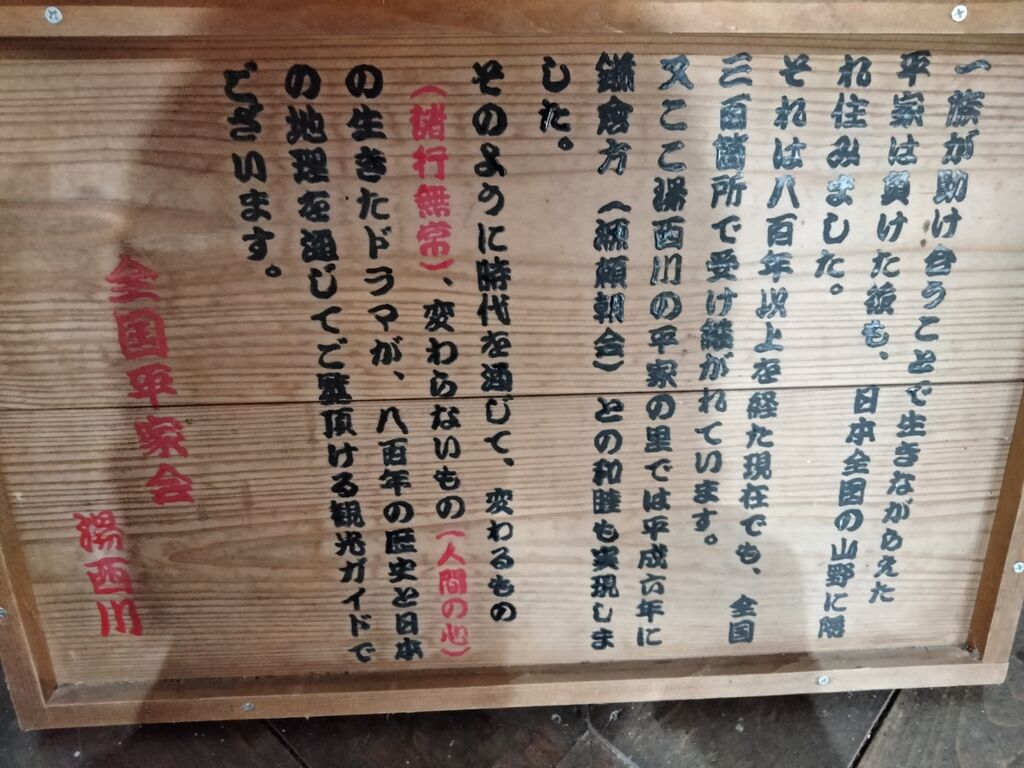 一族が助け合うことで生きながらえた
平家は負けた後も、日本全国の山野に隠
れ住みました。
それは八百年以上を経た現在でも、全国
三百箇所で受け継がれています。
又ここ湯西川の平家の里では平成六年に
鎌倉方(源頼朝会)との和睦も実現しま
した。
そのように時代を通じて、変わるもの
(諸行無常)、変わらないもの(人間の心)
の生きたドラマが、八百年の歴史と日本
の地理を通じてご覧頂ける観光ガイドで
ございます。
全国平家会
湯西川